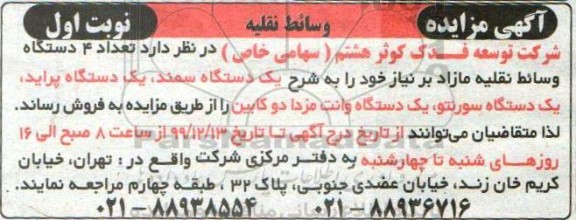 آگهی مزایده وسائط نقلیه نوبت اول
شرکت توسعه فدک کوثر هشتم (سهامی خاص) در نظر دارد تعداد ۴ دستگاه
وسائط نقلیه مازاد بر نیاز خود را به شرح یک دستگاه سمند، یک دستگاه پراید،
یک دستگاه سورنتو، یک دستگاه وانت مزدا دو کابین را از طریق مزایده به فروش رساند.
لذا متقاضیان می‌توانند از تاریخ درج آگهی تا تاریخ ۹۹/۱۲/۱۳ از ساعت ۸ صبح الی ۱۶
روزهای شنبه تا چهارشنبه به دفتر مرکزی شرکت واقع در: تهران، خیابان
کریم خان زند، خیابان عضدی جنوبی، پلاک ۳۲، طبقه چهارم مراجعه نمایند.
۰۲۱-۸۸۹۳۶۷۱۶ ۰۲۱-۸۸۹۳۸۵۵۴